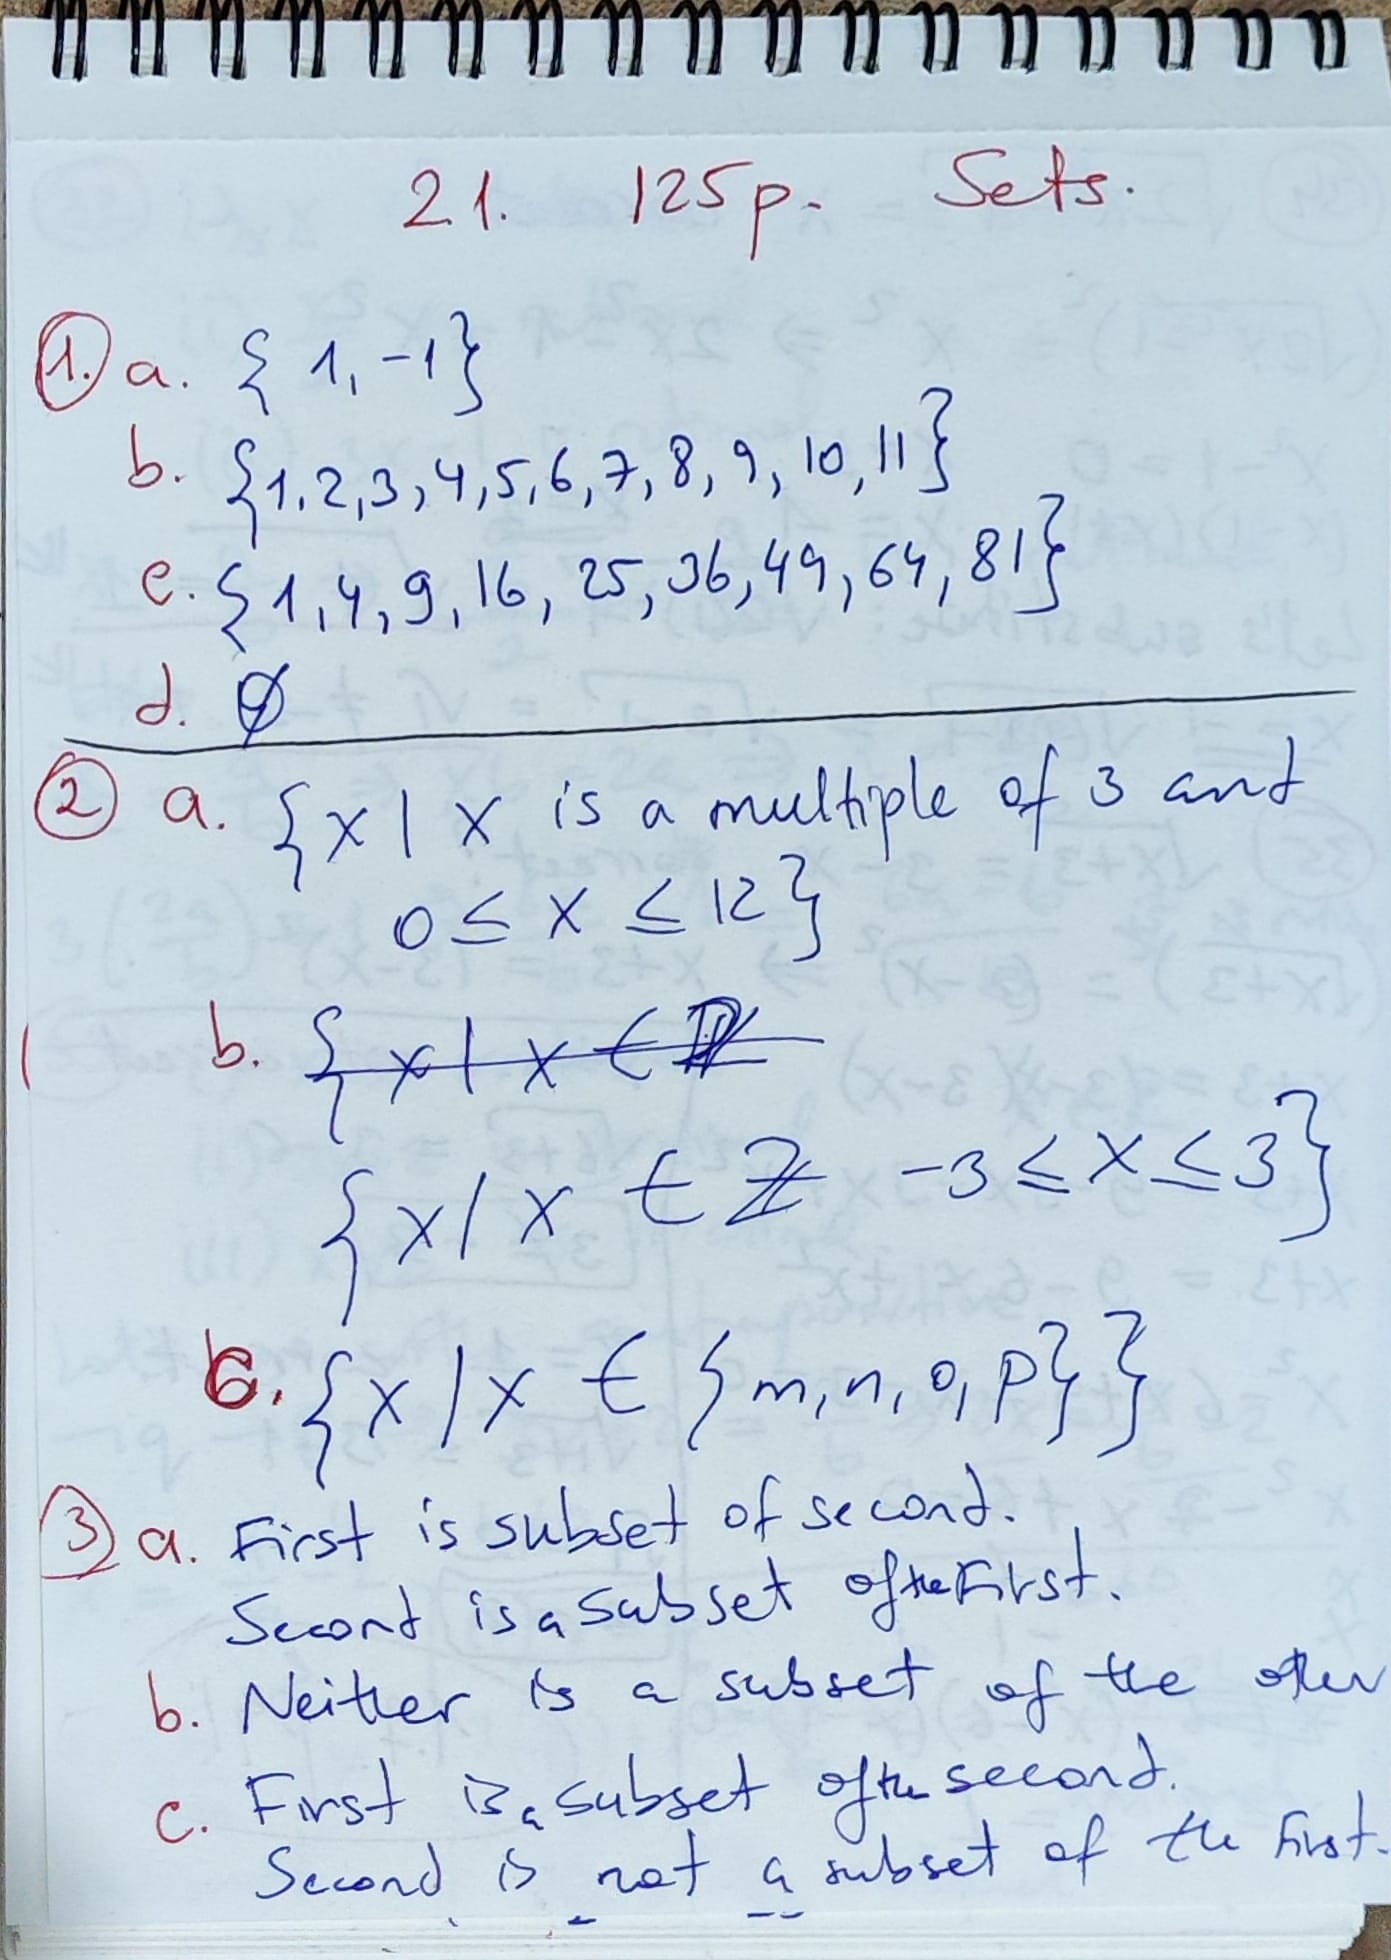 21. 125p. Sets.
1. a. { 1, -1}
b. {1,2,3,4,5,6,7,8,9,10,11}
c. {1,4,9,16,25,36,49,64,81}
d. ∅
2 a. {x | x is a multiple of 3 and
0 ≤ x ≤ 12}
b. {x | x ∈
{x | x ∈ ℤ -3 ≤ x ≤ 3}
c. {x | x ∈ {m,n,o,p}}
3 a. First is subset of second.
Second is a subset of the First.
b. Neither is a subset of the other
c. First is a subset of the second.
Second is not a subset of the First.